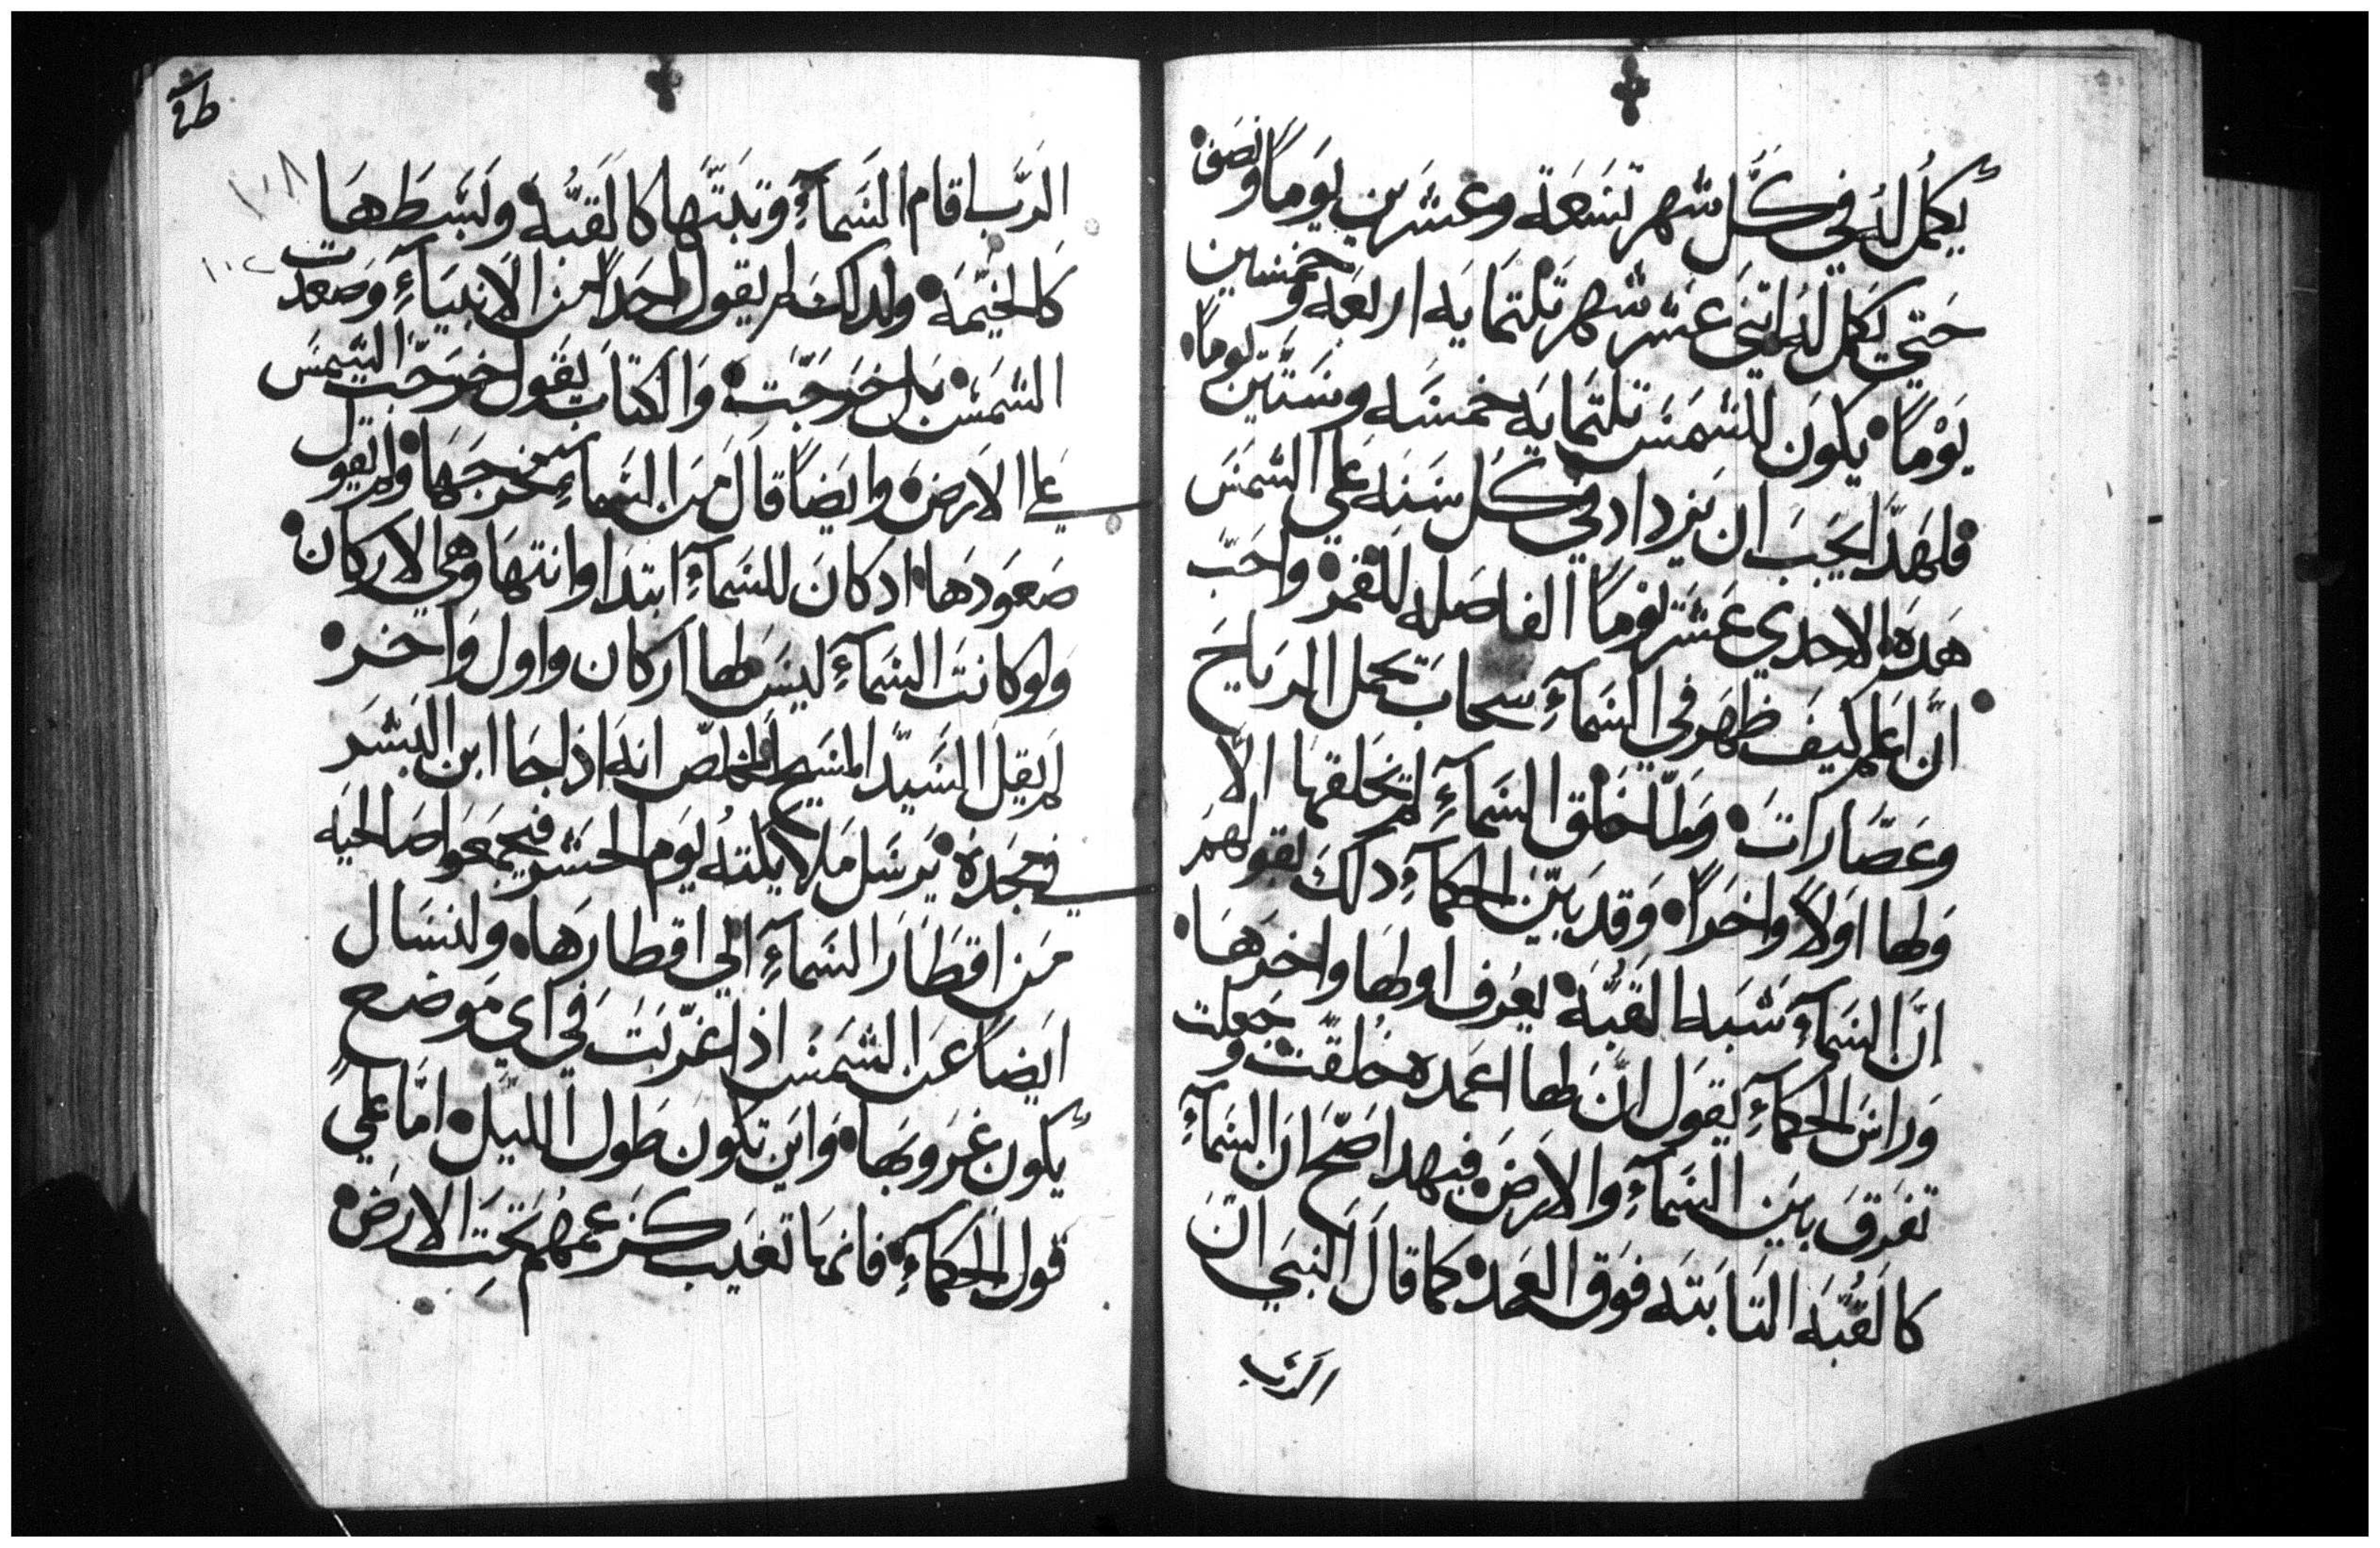 يكمل له في كل شهر تسعة وعشرين يوماً ونصف
حتي يكمل له اتني عشر شهر تلتمايه اربعه وخمسين
يوماً يكون للشمس تلتمايه خمسه وستين يوماً
فلهدا يجب ان يزداد في كل سنه علي الشمس
هده الاحدي عشر يوماً الفاصله للقمر واحب
ان اعلم كيف ظهر في السماء سحاب تحمل الرياح
وعصارات ولما خلق السماء لم تخلقها الا
ولها اولاً واخراً وقد بين الحكماء دلك بقولهم
ان السماء شبه القبه يعرف اولها واخرها
وراس الحكماء يقول ان لها اعمده خلقت وجعلت
تفرق بين السماء والارض فبهدا صح ان السماء
كالقبه التابته فوق العمد كما قال النبي ان
الرب
الرب اقام السماء وتبتها كالقبه وبسطها
كالخيمه ولدلك لم يقول احداً من الانبياء وصعدت
الشمس بل خرجت والكتاب يقول خرجت الشمس
علي الارض وايضاً قال من السماء مخرجها ولم يقول
صعودها ادكان للسماء ابتدا وانتها وهي الاركان
ولو كانت السماء ليس لها اركان واول واخر
لم يقل السيد المسيح المخلص انه اذا جا ابن البشر
في مجده يرسل ملايكته يوم الحشر فيجمعوا صالحيه
من اقطار السماء الي اقطارها ولنسال
ايضاً عن الشمس اذا غربت في اي موضع
يكون غروبها واين تكون طول الليل اما علي
قول الحكماء فانها تغيب كزعمهم تحت الارض
١٠٨
١٠٢